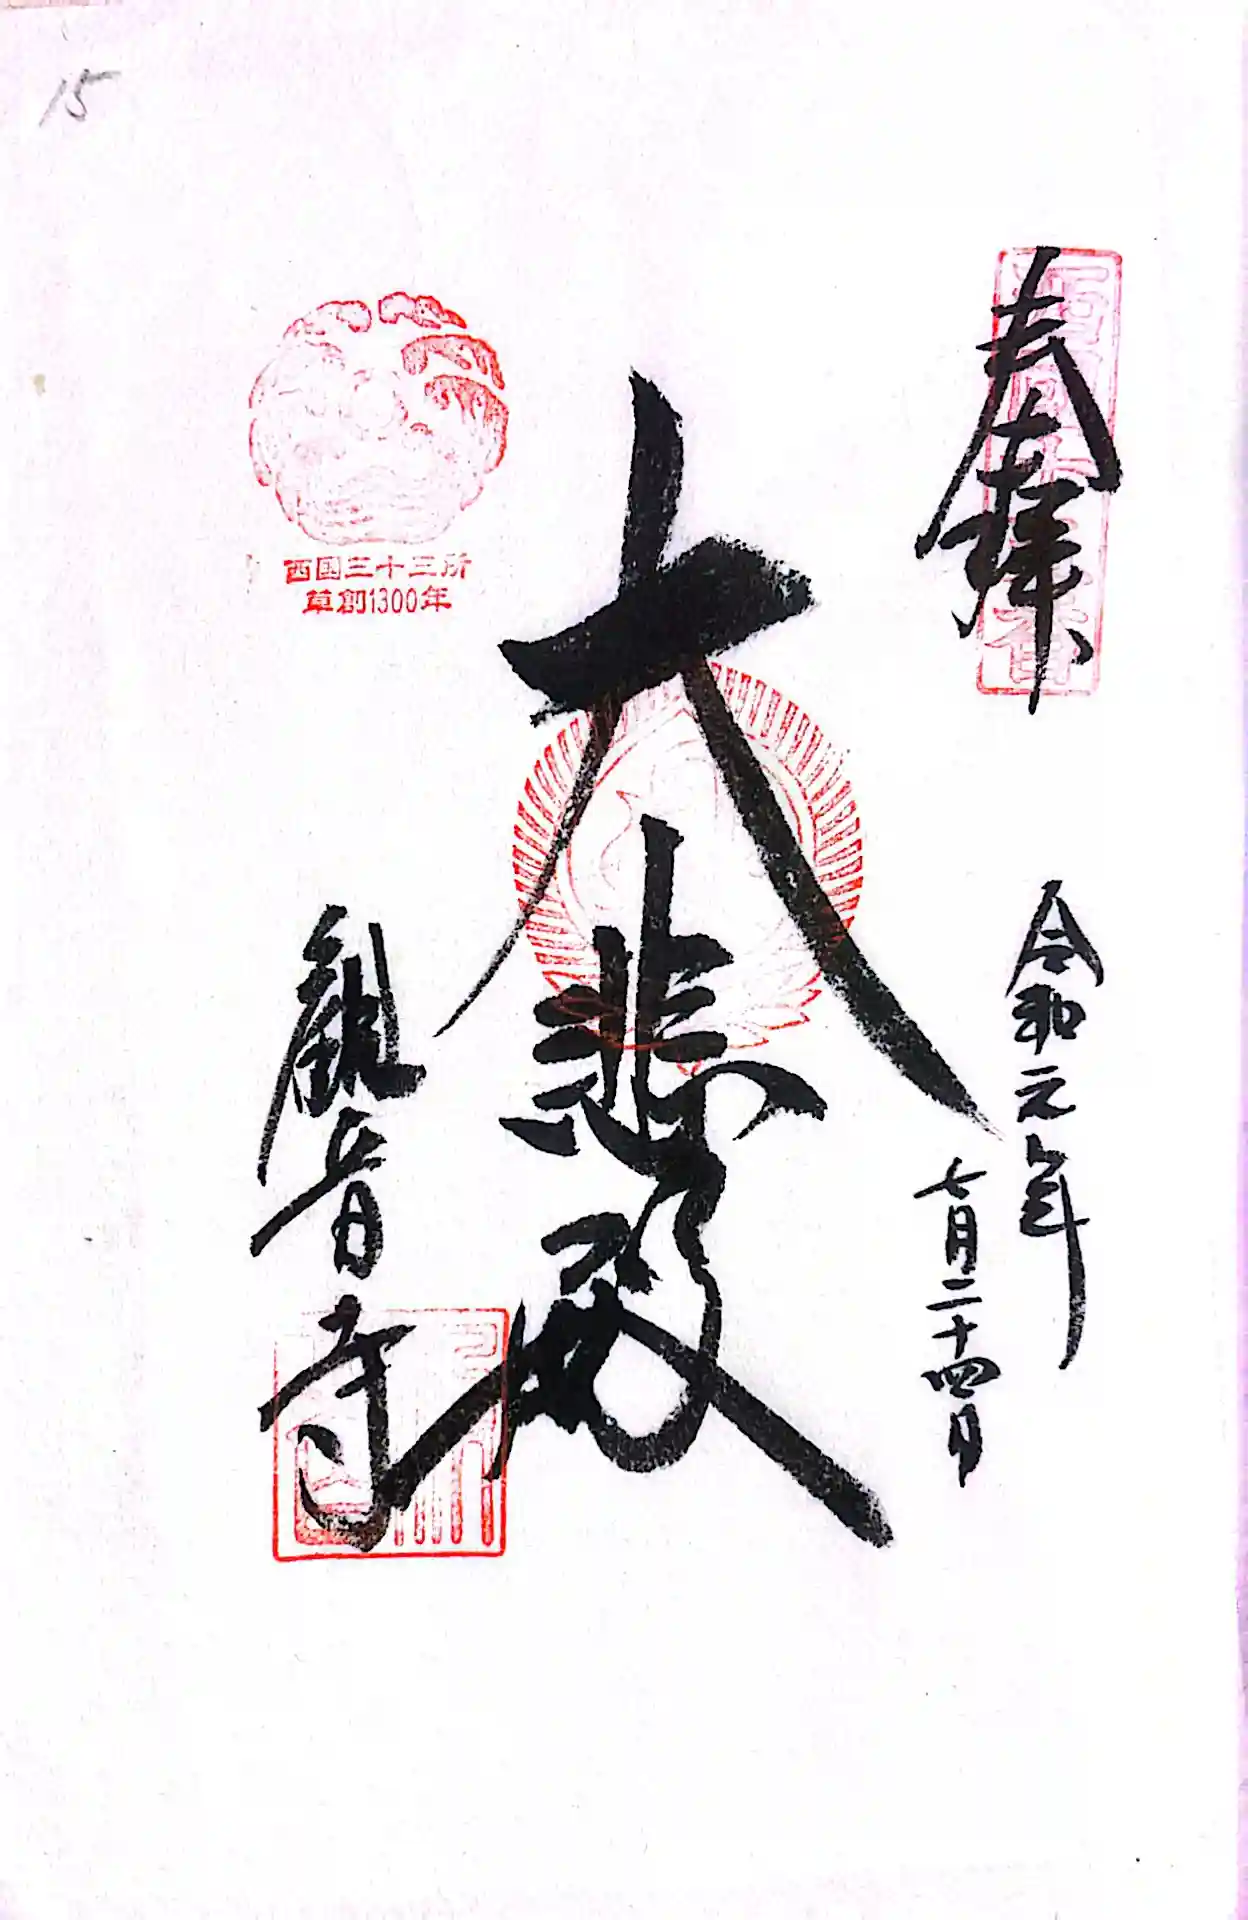 15
奉拜
令和元年
七月二十四日
大悲殿
西国三十三所
草創1300年
觀音寺